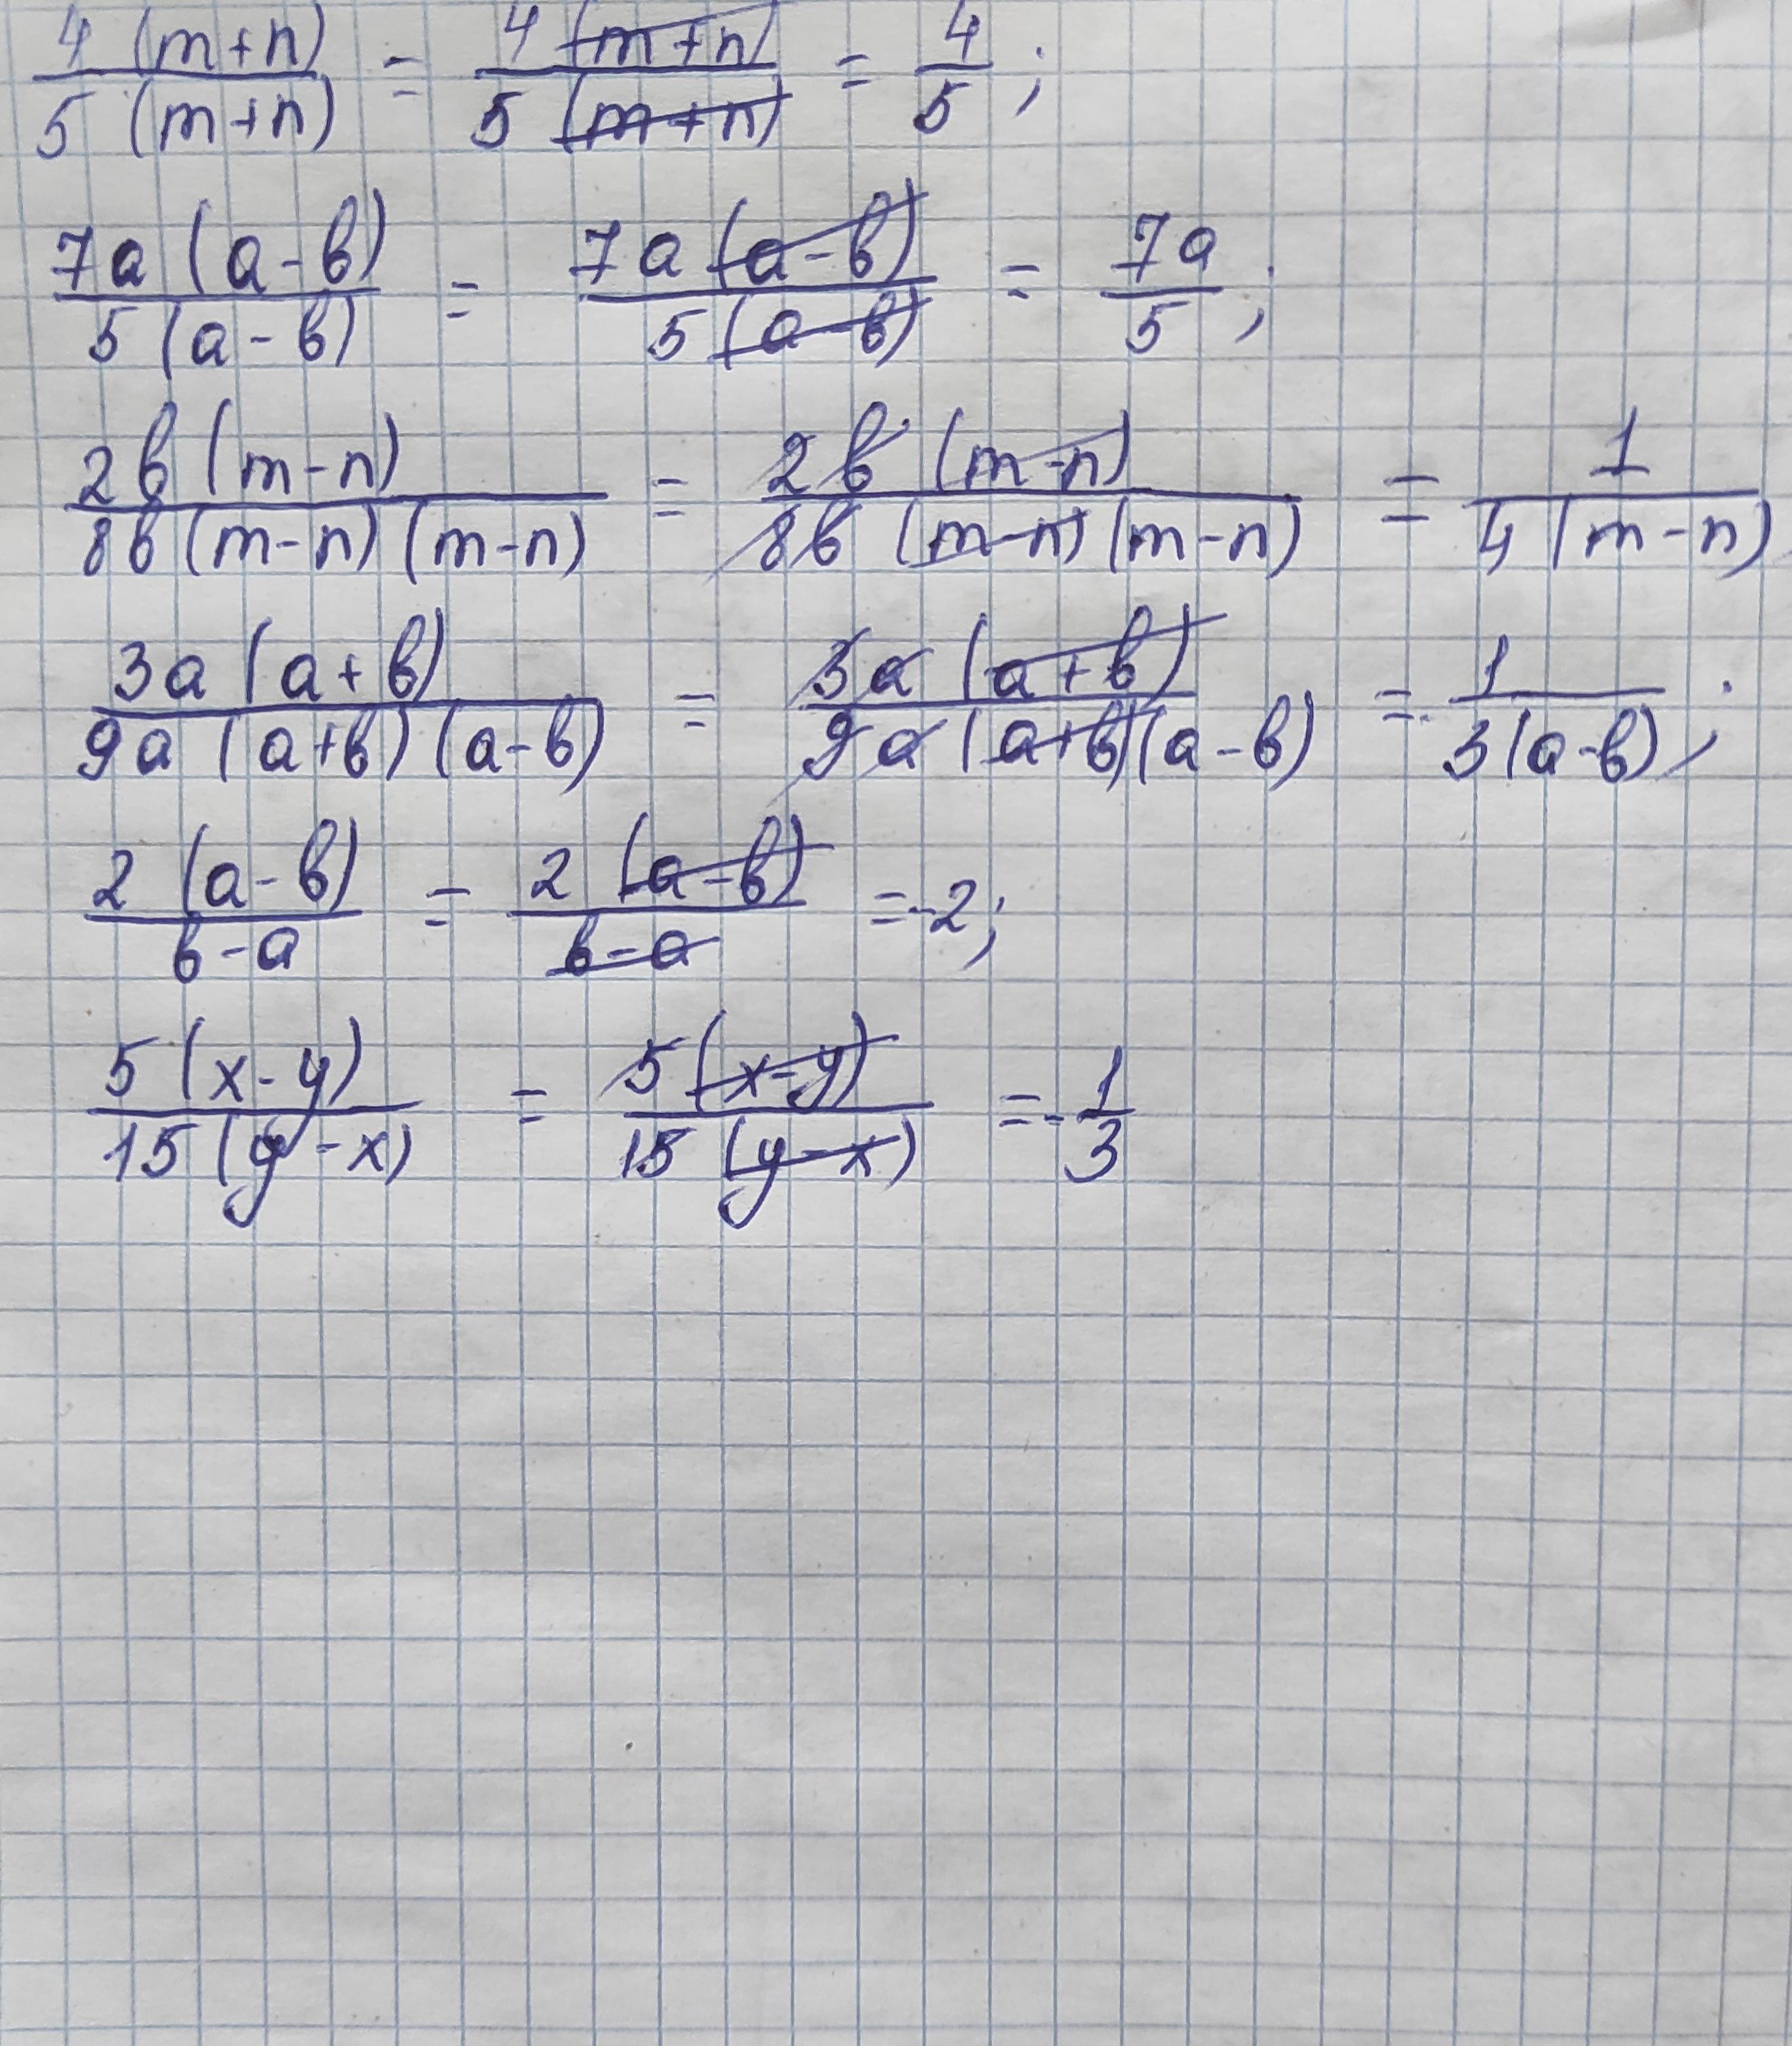 4 (m+n) / 5 (m+n) = 4 (m+n) / 5 (m+n) = 4 / 5 ;
7a (a-b) / 5 (a-b) = 7a (a-b) / 5 (a-b) = 7a / 5 ;
2b (m-n) / 8b (m-n) (m-n) = 2b (m-n) / 8b (m-n) (m-n) = 1 / 4 (m-n)
3a (a+b) / 9a (a+b) (a-b) = 3a (a+b) / 9a (a+b) (a-b) = 1 / 3 (a-b) ;
2 (a-b) / b-a = 2 (a-b) / b-a = -2;
5 (x-y) / 15 (y-x) = 5 (x-y) / 15 (y-x) = - 1 / 3